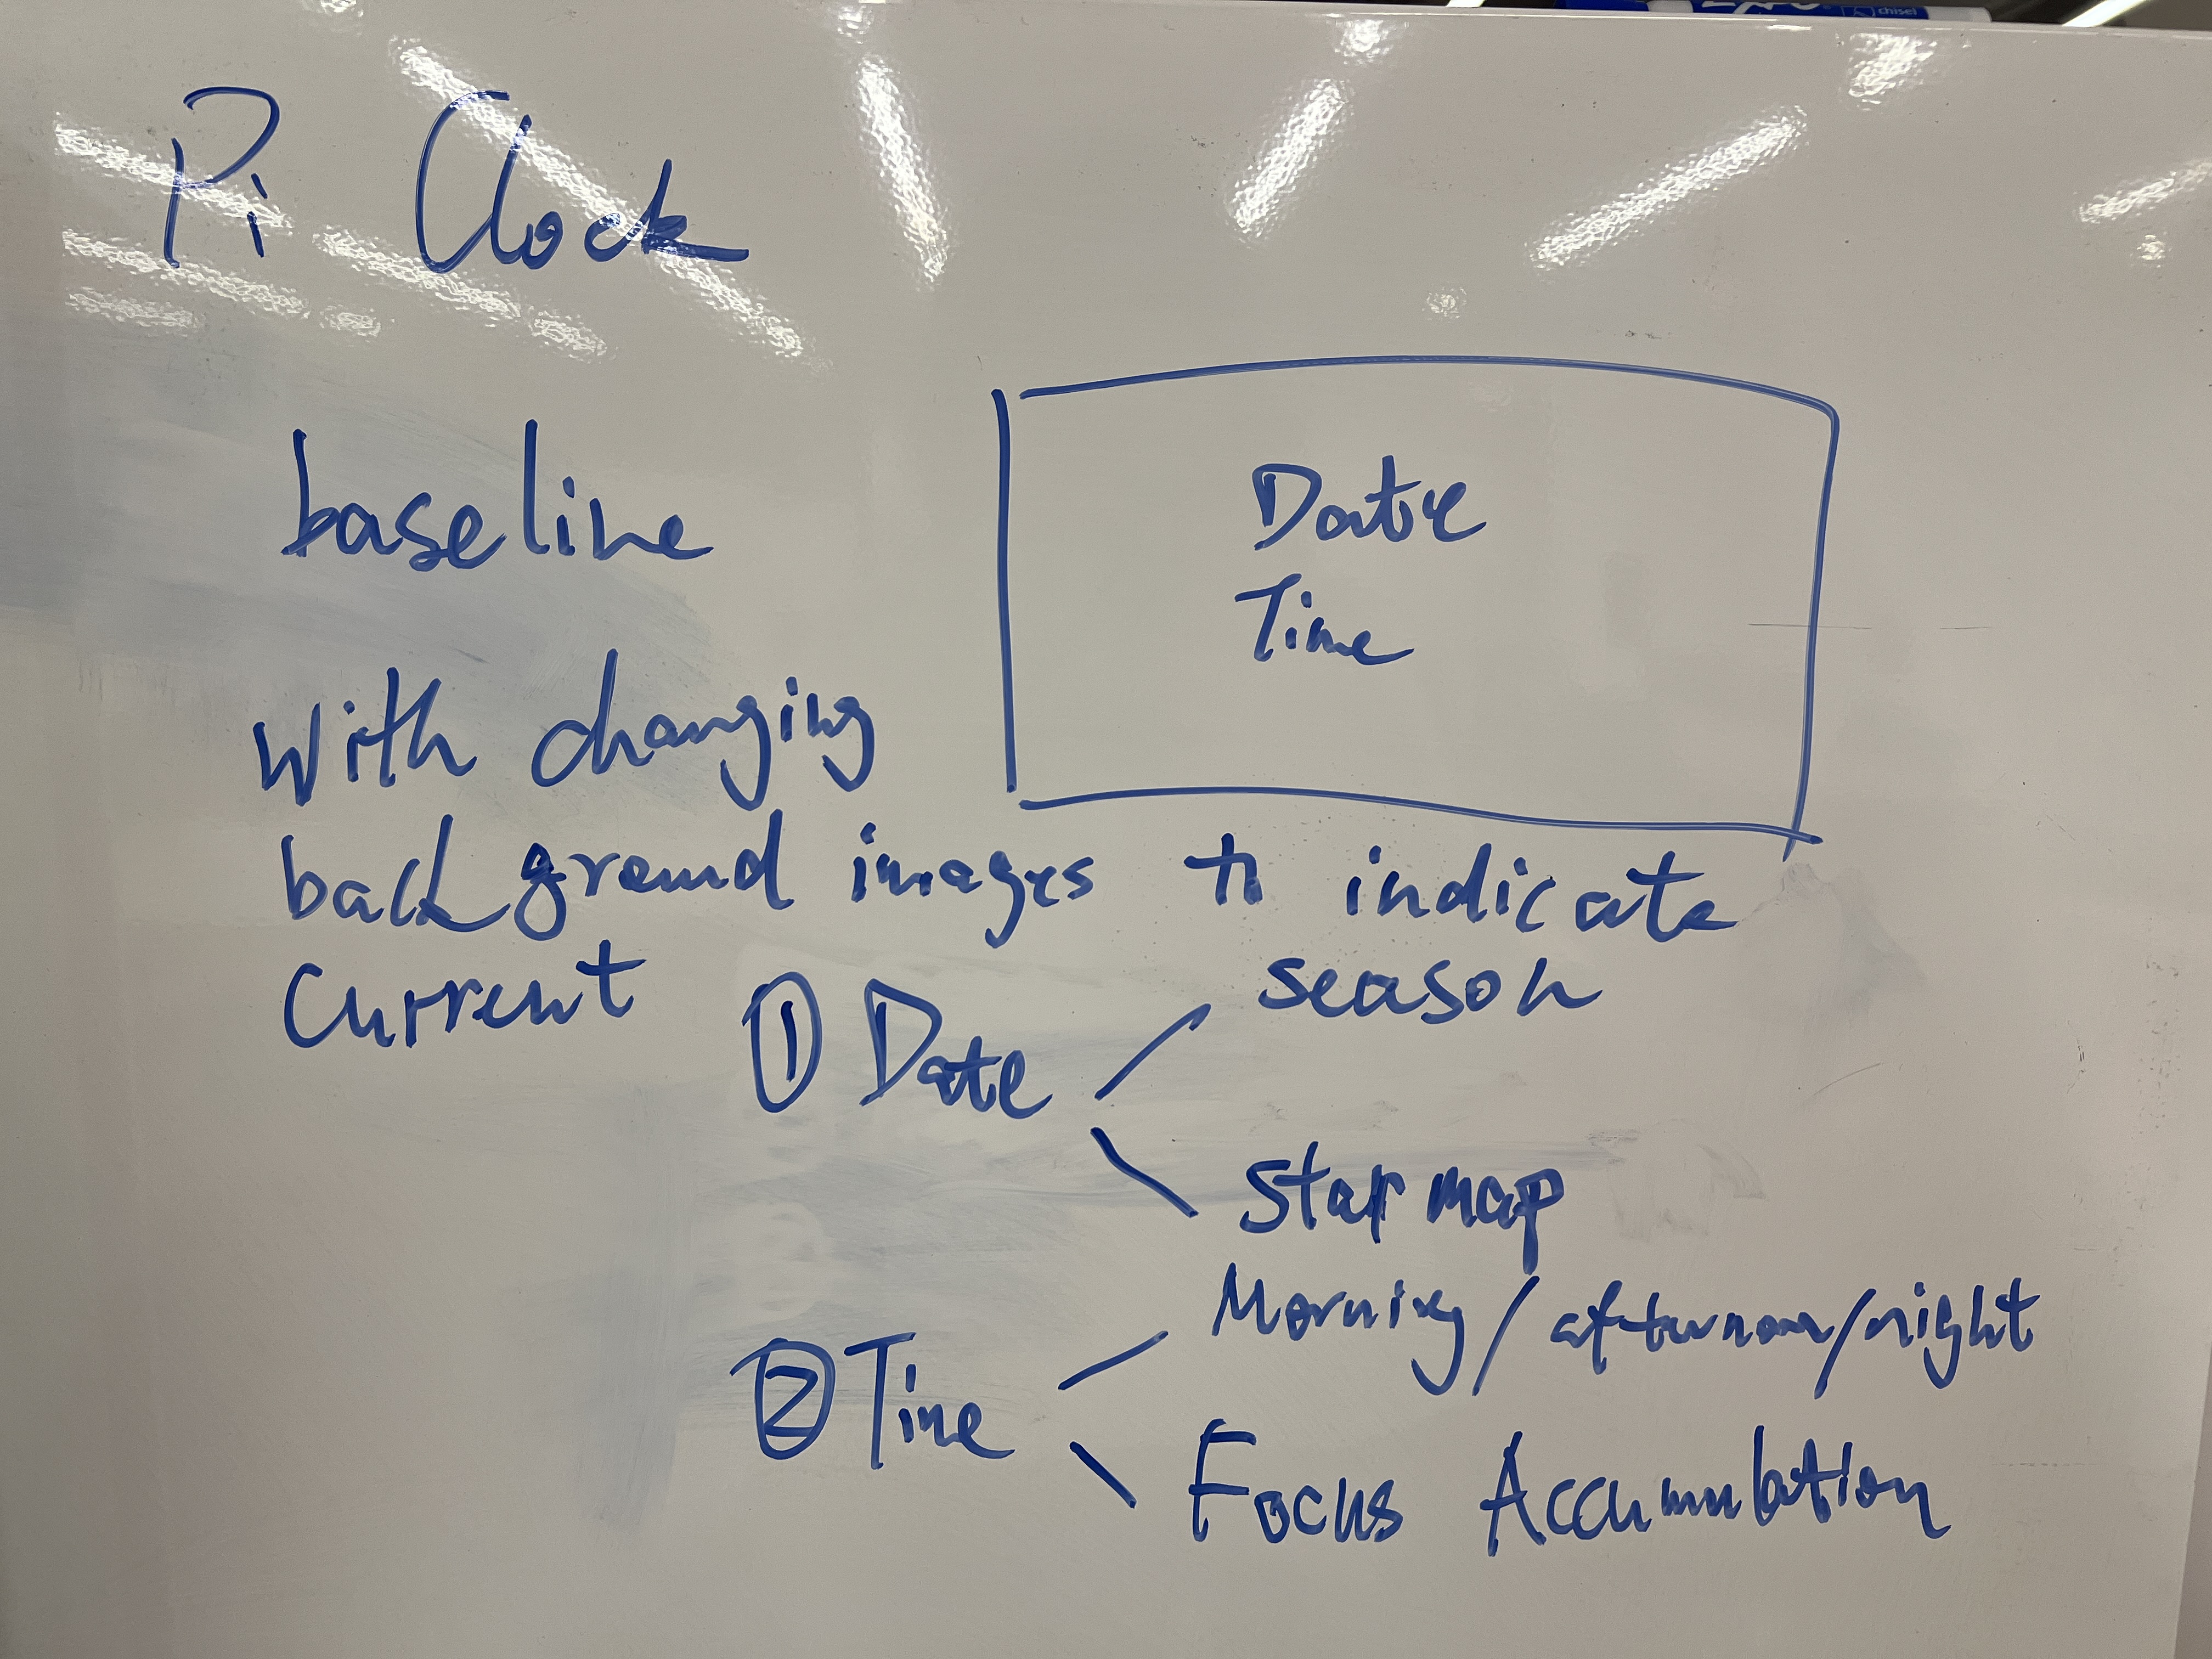 chisel
Pi Clock
baseline
Date
Time
With changing
background images to indicate
current
① Date
season
Star map
② Time
Morning/afternoon/night
Focus Accumulation